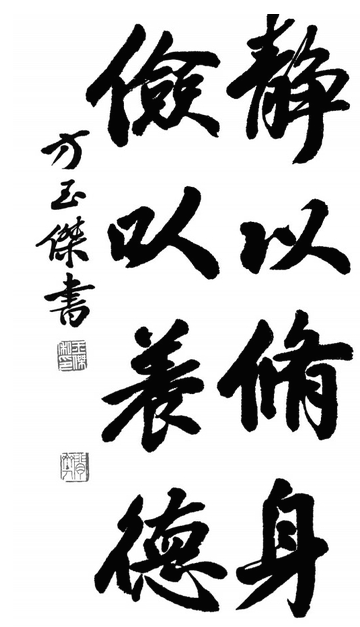 静以脩身
儉以養德
方玉傑书